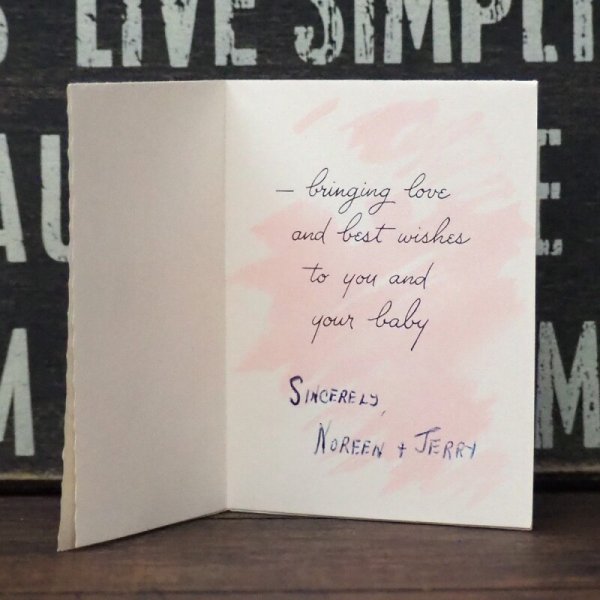 LIVE SIMPL
AU
E
M
M
— bringing love
and best wishes
to you and
your baby
Sincerely,
Noreen + Jerry